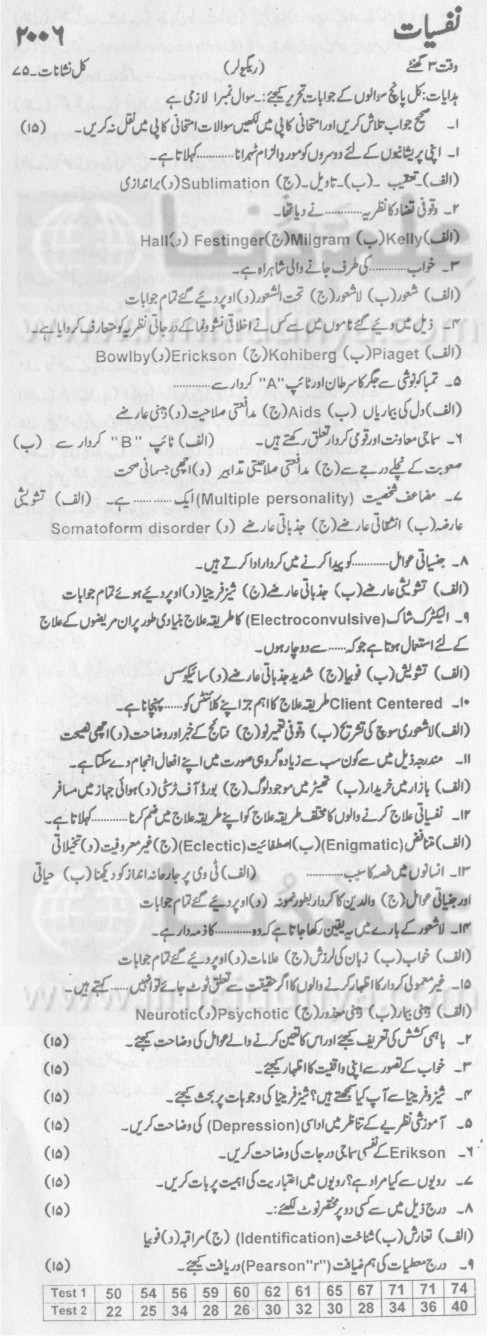 نفسیات
۲۰۰۶
وقت ۳ گھنٹے (ریگولر) کل نشانات۔۷۵
ہدایات: کل پانچ سوالوں کے جوابات تحریر کیجئے:۔ سوال نمبرا لازمی ہے
۱۔ صحیح جواب تلاش کریں اور امتحانی کاپی میں لکھیں سوالات امتحانی کاپی میں نقل نہ کریں۔ (۱۵)
۱۔ اپنی پریشانیوں کے لئے دوسروں کو مورد الزام ٹھہرانا............کہلاتا ہے۔
(الف)۔ تعقیب ۔(ب)۔ تاویل۔ (ج) Sublimation (د) براندازی
۲۔ وقوفی تضاد کا نظریہ............نے دیا تھا۔
(الف) Kelly (ب) Milgram (ج) Festinger (د) Hall
۳۔ خواب............کی طرف جانے والی شاہراہ ہے۔
(الف) شعور (ب) لاشعور (ج) تحت الشعور (د) اوپر دیئے گئے تمام جوابات
۴۔ ذیل میں دیئے گئے ناموں میں سے کس نے اخلاقی نشوونما کے درجاتی نظریہ کو متعارف کروایا ہے۔
(الف) Piaget (ب) Kohiberg (ج) Erickson (د) Bowlby
۵۔ تمباکو نوشی سے جگر کا سرطان اور ٹائپ "A" کردار سے............
(الف) دل کی بیماریاں (ب) Aids (ج) مدافعتی صلاحیت (د) ذہنی عارضے
۶۔ سماجی معاونت اور قومی کردار تعلق رکھتے ہیں۔ (الف) ٹائپ "B" کردار سے (ب)
صعوبت کے نچلے درجے سے (ج) مدافعتی صلاحیتی تدابیر (د) اچھی جسمانی صحت
۷۔ مضاعف شخصیت (Multiple personality) ایک............ہے۔ (الف) تشویشی
عارضہ (ب) انشقاقی عارضے (ج) جذباتی عارضے (د) Somatoform disorder
۸۔ جنیاتی عوامل............کو پیدا کرنے میں کردار ادا کرتے ہیں۔
(الف) تشویشی عارضے (ب) جذباتی عارضے (ج) شیزوفرینیا (د) اوپر دیئے ہوئے تمام جوابات
۹۔ الیکٹرک شاک (Electroconvulsive) کا طریقہ علاج بنیادی طور پر ان مریضوں کے علاج
کے لئے استعمال ہوتا ہے جو کہ......سے دوچار ہوں۔
(الف) تشویش (ب) فوبیا (ج) شدید جذباتی عارضے (د) سائیکوسس
۱۰۔ Client Centered طریقہ علاج کا اہم جز اپنے کلائنٹس کو......پہنچاتا ہے۔
(الف) لاشعوری سوچ کی تشریح (ب) وقوفی تعمیر نو (ج) نتائج کے خبر اور وضاحت (د) اچھی نصیحت
۱۱۔ مندرجہ ذیل میں سے کون سب سے زیادہ گروہی صورت میں اپنے افعال انجام دے سکتا ہے۔
(الف) بازار میں خریدار (ب) تھیٹر میں موجود لوگ (ج) بورڈ آف ٹرسٹی (د) ہوائی جہاز میں مسافر
۱۲۔ نفسیاتی علاج کرنے والوں کا مختلف طریقہ علاج کو اپنے طریقہ علاج میں ضم کرنا............کہلاتا ہے۔
(الف) متناقض (Enigmatic) (ب) اصطفائیت (Eclectic) (ج) غیر معروفیت (د) تخیلاتی
۱۳۔ انسانوں میں غصہ کا سبب............ (الف) ٹی وی پر جارحانہ انداز کو دیکھنا (ب) حیاتی
اور جنیاتی عوامل (ج) والدین کا کردار بطور نمونہ (د) اوپر دیئے گئے تمام جوابات
۱۴۔ لاشعور کے بارے میں یہ یقین رکھا جاتا ہے کہ وہ............کا ذمہ دار ہے۔
(الف) خواب (ب) زبان کی لرزش (ج) علامات (د) اوپر دیئے گئے تمام جوابات
۱۵۔ غیر معمولی کردار کا اظہار کرنے والوں کا اگر حقیقت سے تعلق ٹوٹ جائے تو انہیں......کہتے ہیں۔
(الف) ذہنی بیمار (ب) ذہنی معذور (ج) Psychotic (د) Neurotic
۲۔ باہمی کشش کی تعریف کیجئے اور اس کا تعین کرنے والے عوامل کی وضاحت کیجئے۔ (۱۵)
۳۔ خواب کے تصور سے اپنی واقفیت کا اظہار کیجئے۔ (۱۵)
۴۔ شیزوفرینیا سے آپ کیا سمجھتے ہیں؟ شیزوفرینیا کی وجوہات پر بحث کیجئے۔ (۱۵)
۵۔ آموزشی نظریے کے تناظر میں اداسی (Depression) کی وضاحت کریں۔ (۱۵)
۶۔ Erikson کے نفسی سماجی درجات کی وضاحت کریں۔ (۱۵)
۷۔ رویوں سے کیا مراد ہے؟ رویوں میں اعتباریت کی اہمیت پر بات کریں۔ (۱۵)
۸۔ درج ذیل میں سے کسی دو پر مختصر نوٹ لکھئے:۔
(الف) تعارض (ب) شناخت (Identification) (ج) مراقبہ (د) فوبیا
۹۔ درج معطیات کی ہم ضیافت (Pearson"r") دریافت کیجئے۔ (۱۵)
Test 1 50 54 56 59 60 62 61 65 67 71 71 74
Test 2 22 25 34 28 26 30 32 30 28 34 36 40